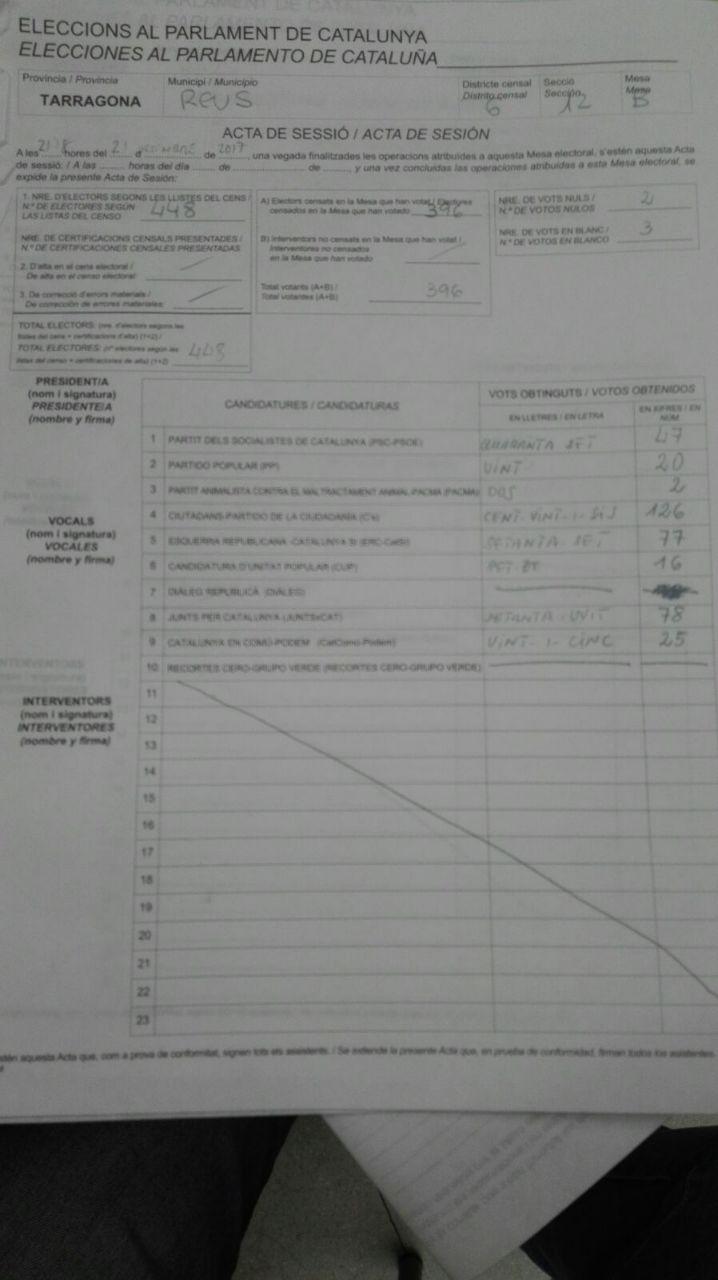 ELECCIONS AL PARLAMENT DE CATALUNYA
ELECCIONES AL PARLAMENTO DE CATALUÑA
Provincia / Provincia
TARRAGONA
Municipi / Municipio
REUS
Districte censal
Distrito censal
6
Secció
Sección
12
Mesa
Mesa
B
ACTA DE SESSIÓ / ACTA DE SESIÓN
A les hores del 21 d de 2017, una vegada finalitzades les operacions atribuïdes a aquesta Mesa electoral, s'estén aquesta Acta
de sessió. / A las ........ horas del día ...... de ............ de ........, y una vez concluidas las operaciones atribuidas a esta Mesa electoral, se
expide la presente Acta de Sesión:
1. NRE. D'ELECTORS SEGONS LES LLISTES DEL CENS /
N.º DE ELECTORES SEGÚN
LAS LISTAS DEL CENSO 448
NRE. DE CERTIFICACIONS CENSALS PRESENTADES /
N.º DE CERTIFICACIONES CENSALES PRESENTADAS
2. D'alta en el cens electoral /
De alta en el censo electoral:
3. De correcció d'errors materials /
De corrección de errores materiales:
TOTAL ELECTORS: (nre. d'electors segons les
llistes del cens + certificacions d'alta) (1+2) /
TOTAL ELECTORES: (nº electores según las
listas del censo + certificaciones de alta) (1+2) 448
A) Electors censats en la Mesa que han votat / Electores
censados en la Mesa que han votado 396
B) Interventors no censats en la Mesa que han votat /
Interventores no censados
en la Mesa que han votado
Total votants (A+B) /
Total votantes (A+B) 396
NRE. DE VOTS NULS /
N.º DE VOTOS NULOS 2
NRE. DE VOTS EN BLANC /
N.º DE VOTOS EN BLANCO 3
PRESIDENT/A
(nom i signatura)
PRESIDENTE/A
(nombre y firma)
VOCALS
(nom i signatura)
VOCALES
(nombre y firma)
INTERVENTORS
(nom i signatura)
INTERVENTORES
(nombre y firma)
CANDIDATURES / CANDIDATURAS
VOTS OBTINGUTS / VOTOS OBTENIDOS
EN LLETRES / EN LETRA
EN XIFRES / EN NÚM.
1 PARTIT DELS SOCIALISTES DE CATALUNYA (PSC-PSOE) QUARANTA SET 47
2 PARTIDO POPULAR (PP) VINT 20
3 PARTIT ANIMALISTA CONTRA EL MALTRACTAMENT ANIMAL-PACMA (PACMA) DOS 2
4 CIUTADANS-PARTIDO DE LA CIUDADANÍA (C's) CENT-VINT-I-SIS 126
5 ESQUERRA REPUBLICANA -CATALUNYA SÍ (ERC-CatSí) SETANTA-SET 77
6 CANDIDATURA D'UNITAT POPULAR (CUP) 16
7 DIÀLEG REPUBLICÀ (DIÀLEG)
8 JUNTS PER CATALUNYA (JUNTSxCAT) SETANTA-VUIT 78
9 CATALUNYA EN COMÚ-PODEM (CatComú-Podem) VINT-I-CINC 25
10 RECORTES CERO-GRUPO VERDE (RECORTES CERO-GRUPO VERDE)
11
12
13
14
15
16
17
18
19
20
21
22
23
aquesta Acta que, com a prova de conformitat, signen tots els assistents. / Se extiende la presente Acta que, en prueba de conformidad, firman todos los asistentes.